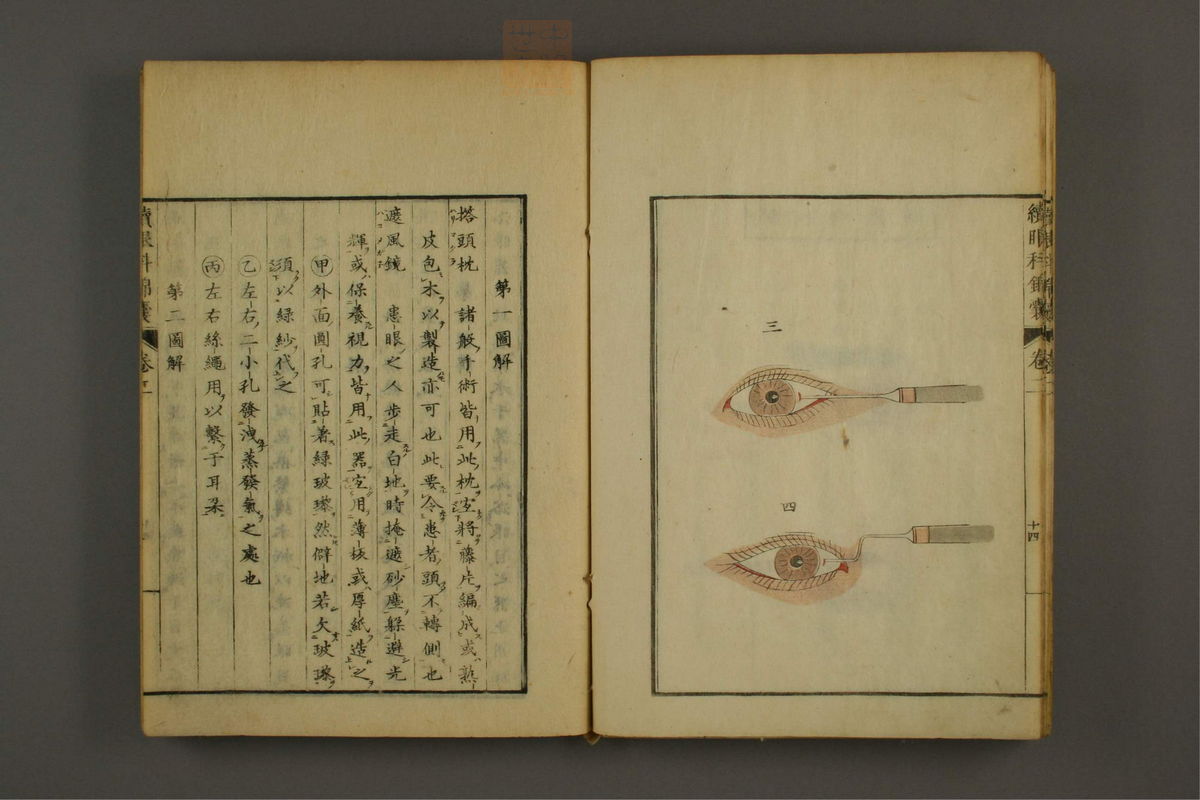 續眼科錦囊 卷二
十四
三
四
第一圖解
搭頭枕 諸般手術皆用此枕宜將藤片編成或熟
皮包木以製造亦可也此要令患者頭不轉側也
遮風鏡 患眼之人步走白地時掩遮砂塵躲避光
輝或保養視力皆用此器宜用薄板或厚紙造之
甲外面圓孔可貼著綠玻瓈然僻地若欠玻瓈
須以綠紗代之
乙左右二小孔發洩蒸發氣之處也
丙左右絲繩用以繫于耳朶
第二圖解
續眼科錦囊 卷二